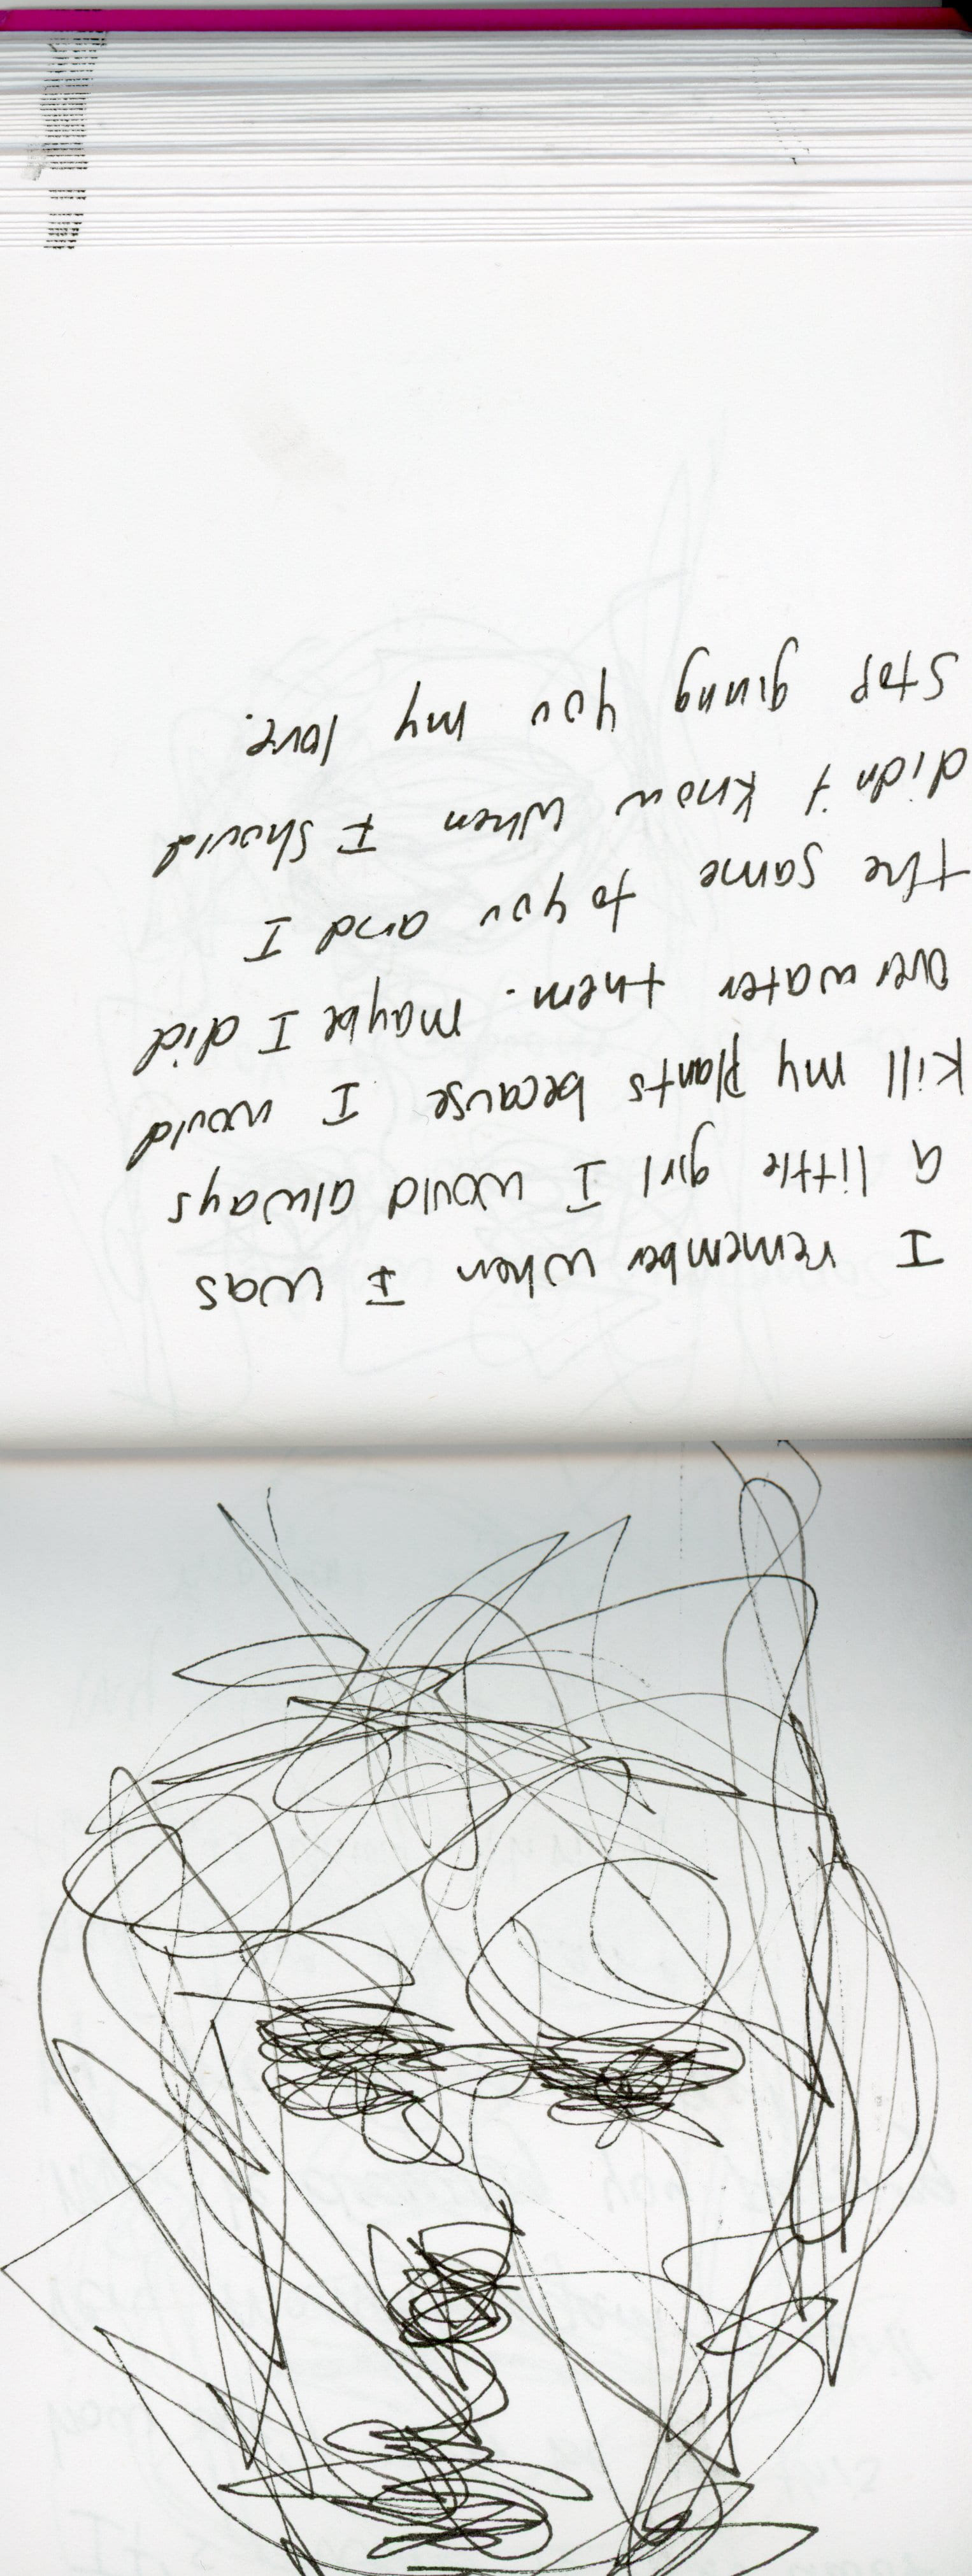 I remember when I was
a little girl I would always
kill my plants because I would
over water them. maybe I did
the same to you and I
didn't know when I should
stop giving you my love.